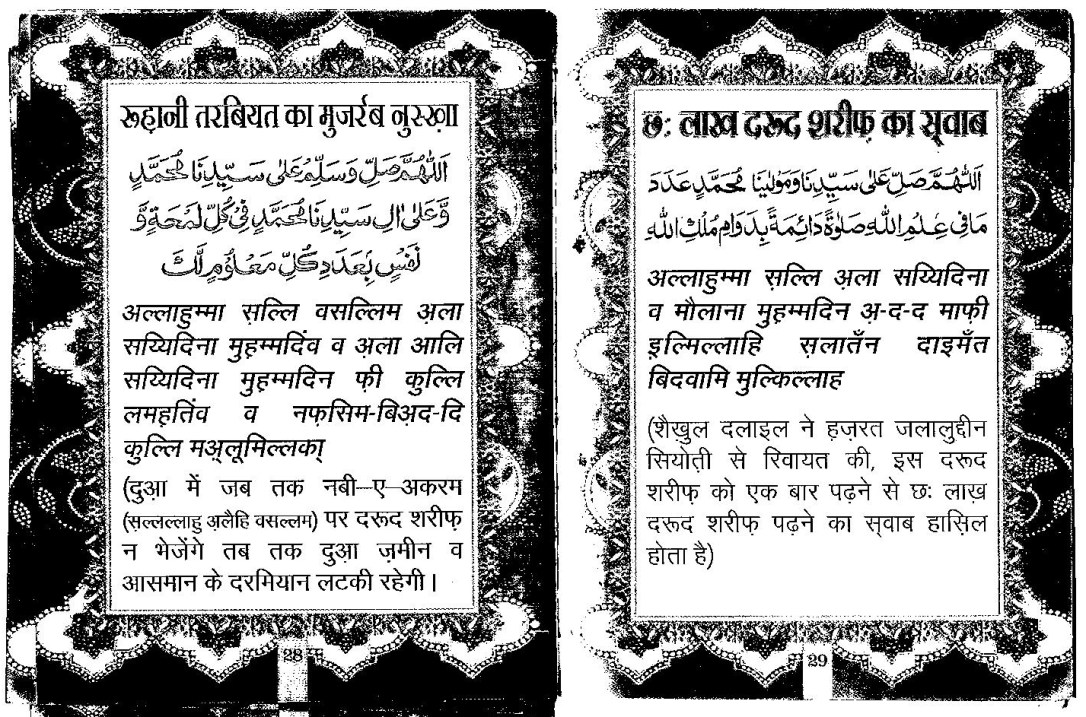 रूह़ानी तरबियत का मुजर्रब नुस्ख़ा
اَللّٰهُمَّ صَلِّ وَسَلِّمْ عَلٰی سَيِّدِنَا مُحَمَّدٍ
وَّعَلٰی اٰلِ سَيِّدِنَا مُحَمَّدٍ فِیْ كُلِّ لَمْحَةٍ وَّ
نَفَسٍ بِعَدَدِ كُلِّ مَعْلُوْمٍ لَّكَ
अल्लाहुम्मा स़ल्लि वसल्लिम अ़ला
सय्यिदिना मुह़म्मदिंव व अ़ला आलि
सय्यिदिना मुह़म्मदिन फ़ी कुल्लि
लमह़तिंव व नफ़सिम-बिअ़द-दि
कुल्लि मअ़्लूमिल्लका्
(दुआ़ में जब तक नबी-ए-अकरम
(स़ल्लल्लाहु अ़लैहि वसल्लम) पर दरूद शरीफ़
न भेजेंगे तब तक दुआ़ ज़मीन व
आसमान के दरमियान लटकी रहेगी।
28
छः लाख दरूद शरीफ़ का स्वाब
اَللّٰهُمَّ صَلِّ عَلٰی سَيِّدِنَا وَمَوْلٰينَا مُحَمَّدٍ عَدَدَ
مَا فِیْ عِلْمِ اللّٰهِ صَلٰوةً دَائِمَةً بِدَوَامِ مُلْكِ اللّٰهِ
अल्लाहुम्मा स़ल्लि अ़ला सय्यिदिना
व मौलाना मुह़म्मदिन अ़-द-द माफ़ी
इ़ल्मिल्लाहि स़लातँन दाइमँत
बिदवामि मुल्किल्लाह
(शैख़ुल दलाइल ने ह़ज़रत जलालुद्दीन
सियोत़ी से रिवायत की, इस दरूद
शरीफ़ को एक बार पढ़ने से छः लाख़
दरूद शरीफ़ पढ़ने का स्वाब हासि़ल
होता है)
29